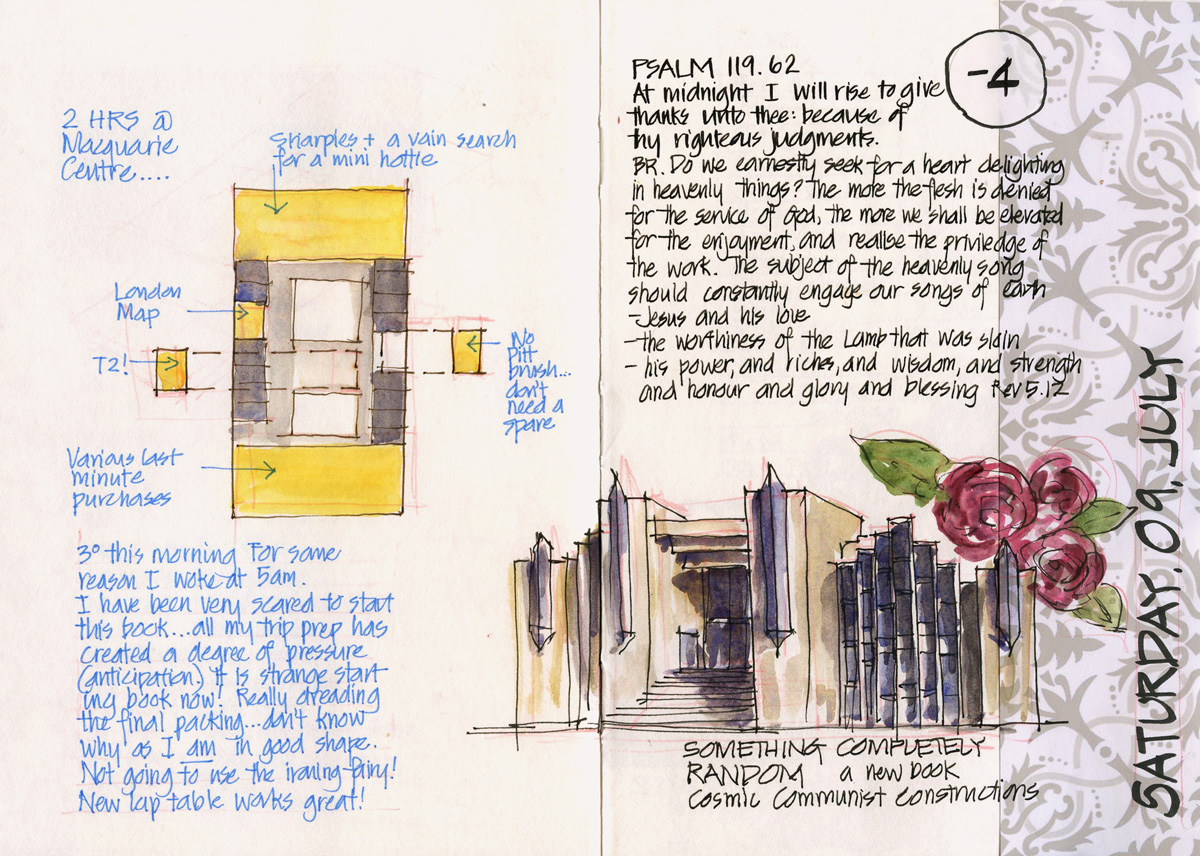 2 HRS @
Macquarie
Centre....
Sharples + a vain search
for a mini hottie
London
Map
T2!
No
Pitt
brush...
don't
need a
spare
Various last
minute
purchases
3° this morning For some
reason I woke at 5am.
I have been very scared to start
this book...all my trip prep has
created a degree of pressure
(anticipation.) It is strange start
ing book now! Really dreading
the final packing...don't know
why as I am in good shape.
Not going to use the ironing fairy!
New lap table works great!
PSALM 119.62
-4
At midnight I will rise to give
thanks unto thee: because of
thy righteous judgments.
BR. Do we earnestly seek for a heart delighting
in heavenly things? The more the flesh is denied
for the service of God, the more we shall be elevated
for the enjoyment, and realise the priviledge of
the work. The subject of the heavenly song
should constantly engage our songs of earth
-Jesus and his love
-the worthiness of the Lamb that was slain
- his power, and riches, and wisdom, and strength
and honour and glory and blessing Rev 5.12
SOMETHING COMPLETELY
RANDOM a new book
Cosmic Communist Constructions
SATURDAY. 09, JULY